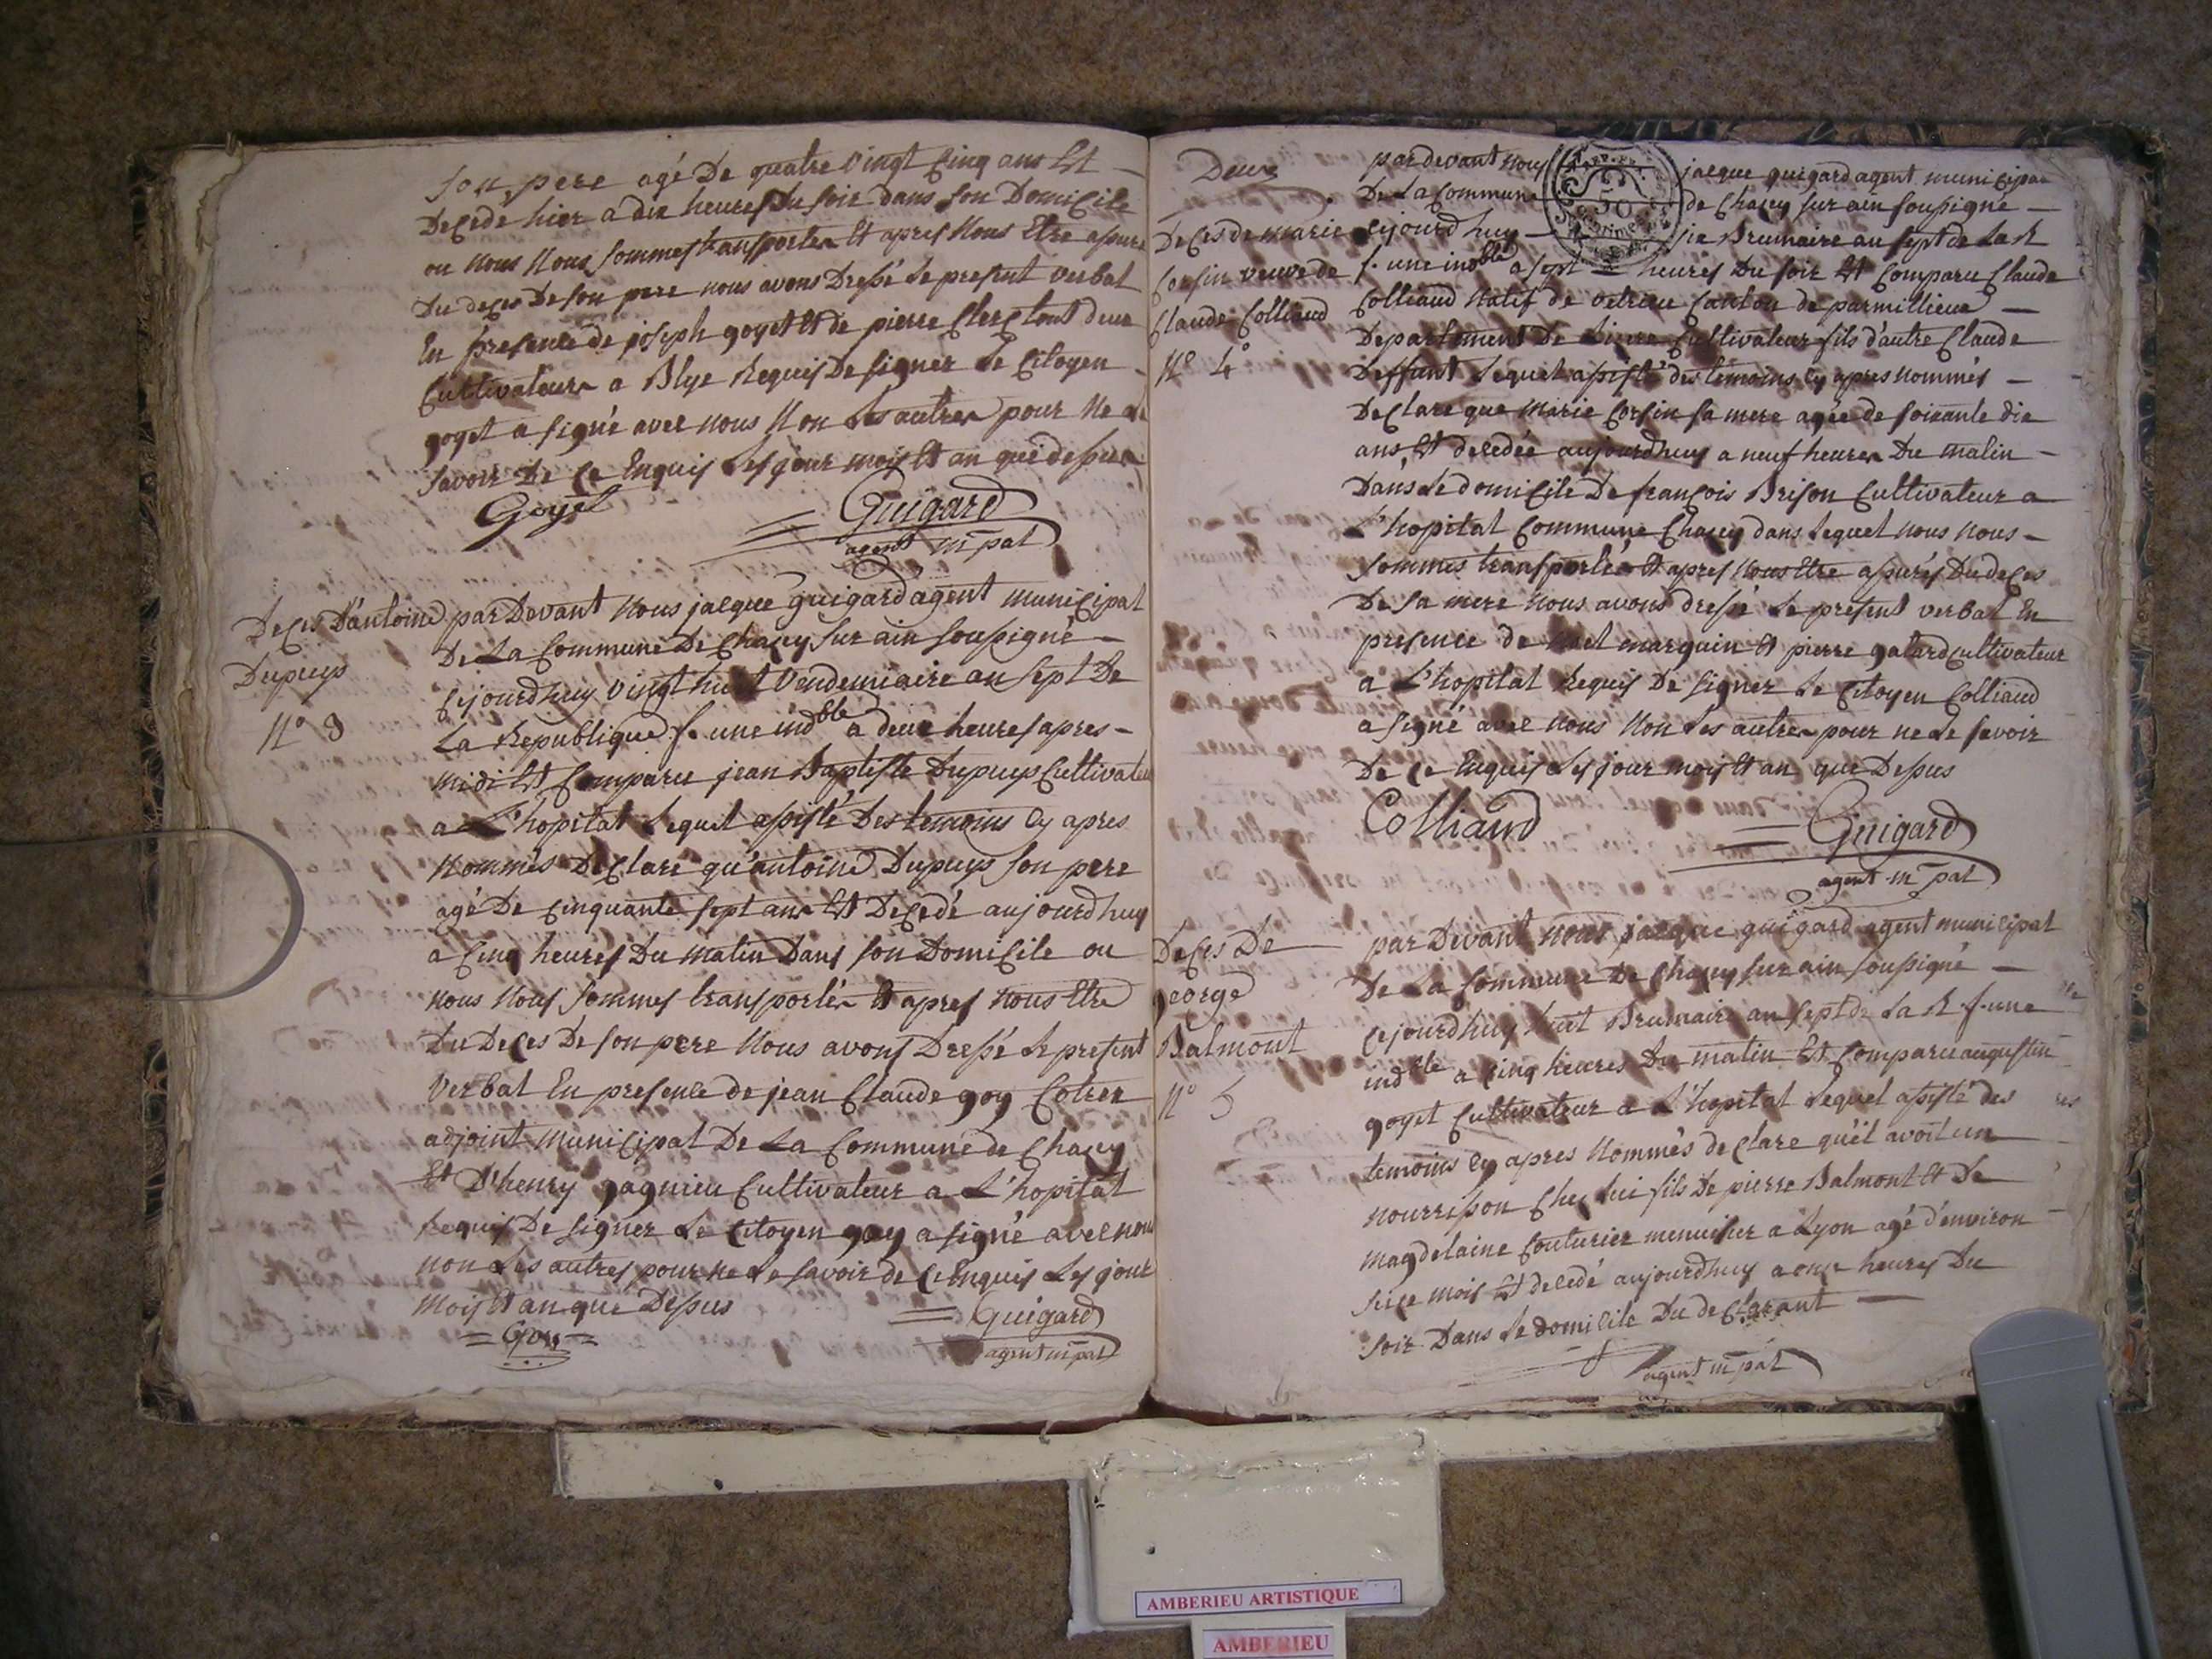 son pere agé De quatre vingt cinq ans Est
Decedé hier a dix heures Du soir dans son Domicile
ou nous Nous sommes transportés Et apres Nous Etre assuré
Du deces De son pere nous avons Dressé Le present verbal
En presence de joseph goyet Et de pierre Clerc tout deux
Cultivateurs a Blye Requis De signer Le Citoyen
goyet a signé avec nous Non Les autres pour Ne Le
savoir De Ce Enquis Les jour mois Et an que dessus
Goyet
Guigard
agent mpal
Deces D'antoine
Dupuys
N° 3
par Devant Nous jacque guigard agent municipal
De La Commune De Chazey sur ain soussigné
Cejourdhuy vingt huit Vendemiaire an sept De
La Republique f. une indble a deux heures apres
midi Est Comparu jean Baptiste Dupuys Cultivateur
a L'hopital Lequel assisté Des temoins Cy apres
Nommés Declare qu'antoine Dupuys son pere
agé De cinquante sept ans Est Decedé aujourdhuy
a Cinq heures Du matin Dans son Domicile ou
nous Nous sommes transportés Et apres Nous Etre
Du Deces De son pere Nous avons Dressé Le present
Verbal En presence de jean Claude goy Cotren
adjoint Municipal De La Commune de Chazey
Et D'henry gagnieu Cultivateur a L'hopital
Requis De signer Le Citoyen goy a signé avec nous
non Les autres pour Ne Le savoir de Ce Enquis Les jour
Mois Et an que Dessus
Goy
Guigard
agent mpal
Deux
Deces de marie
Corsin veuve de
Claude Colliaud
N° 4°
par devant nous jacque guigard agent municipal
De La Commune de Chazey sur ain soussigné
Cejourdhuy six Brumaire an sept de La R
f. une indble a sept heures Du soir Est Comparu Claude
Colliaud Natif de vetrieu Canton de parmillieux
Departement De Lizere Cultivateur fils d'autre Claude
Deffunt Lequel assisté des temoins Cy apres nommés
Declare que Marie Corsin sa mere agée de soixante dix
ans Est decedée aujourdhuy a neuf heures Du matin
Dans Le domicile De françois Brison Cultivateur a
L'hopital Commune Chazey dans Lequel nous nous
sommes transportés Et apres Nous Etre assurés Du deces
De sa mere Nous avons dressé Le present verbal En
presence de marguin Et pierre galard Cultivateur
a L'hopital Requis De signer Le Citoyen Colliaud
a signé avec nous Non Les autres pour ne Le savoir
De Ce Enquis Les jour mois Et an que Dessus
Colliaud
Guigard
agent mpal
Deces De
george
Balmont
N° 5
par Devant nous jacque guigard agent municipal
De La Commune De Chazey sur ain soussigné
Cejourdhuy huit Brumaire an sept de La R. f. une
indble a Cinq heures Du matin Est Comparu augustin
goyet Cultivateur a L'hopital Lequel assisté des
temoins Cy apres Nommés declare qu'il avoit un
nourrisson Chez Lui fils De pierre Balmont Et De
magdelaine Couturier menuisier a Lyon agé d'environ
seize mois Est decedé aujourdhuy a onze heures Du
soir Dans Le domicile Du declarant
agent mpal
AMBERIEU ARTISTIQUE
AMBERIEU